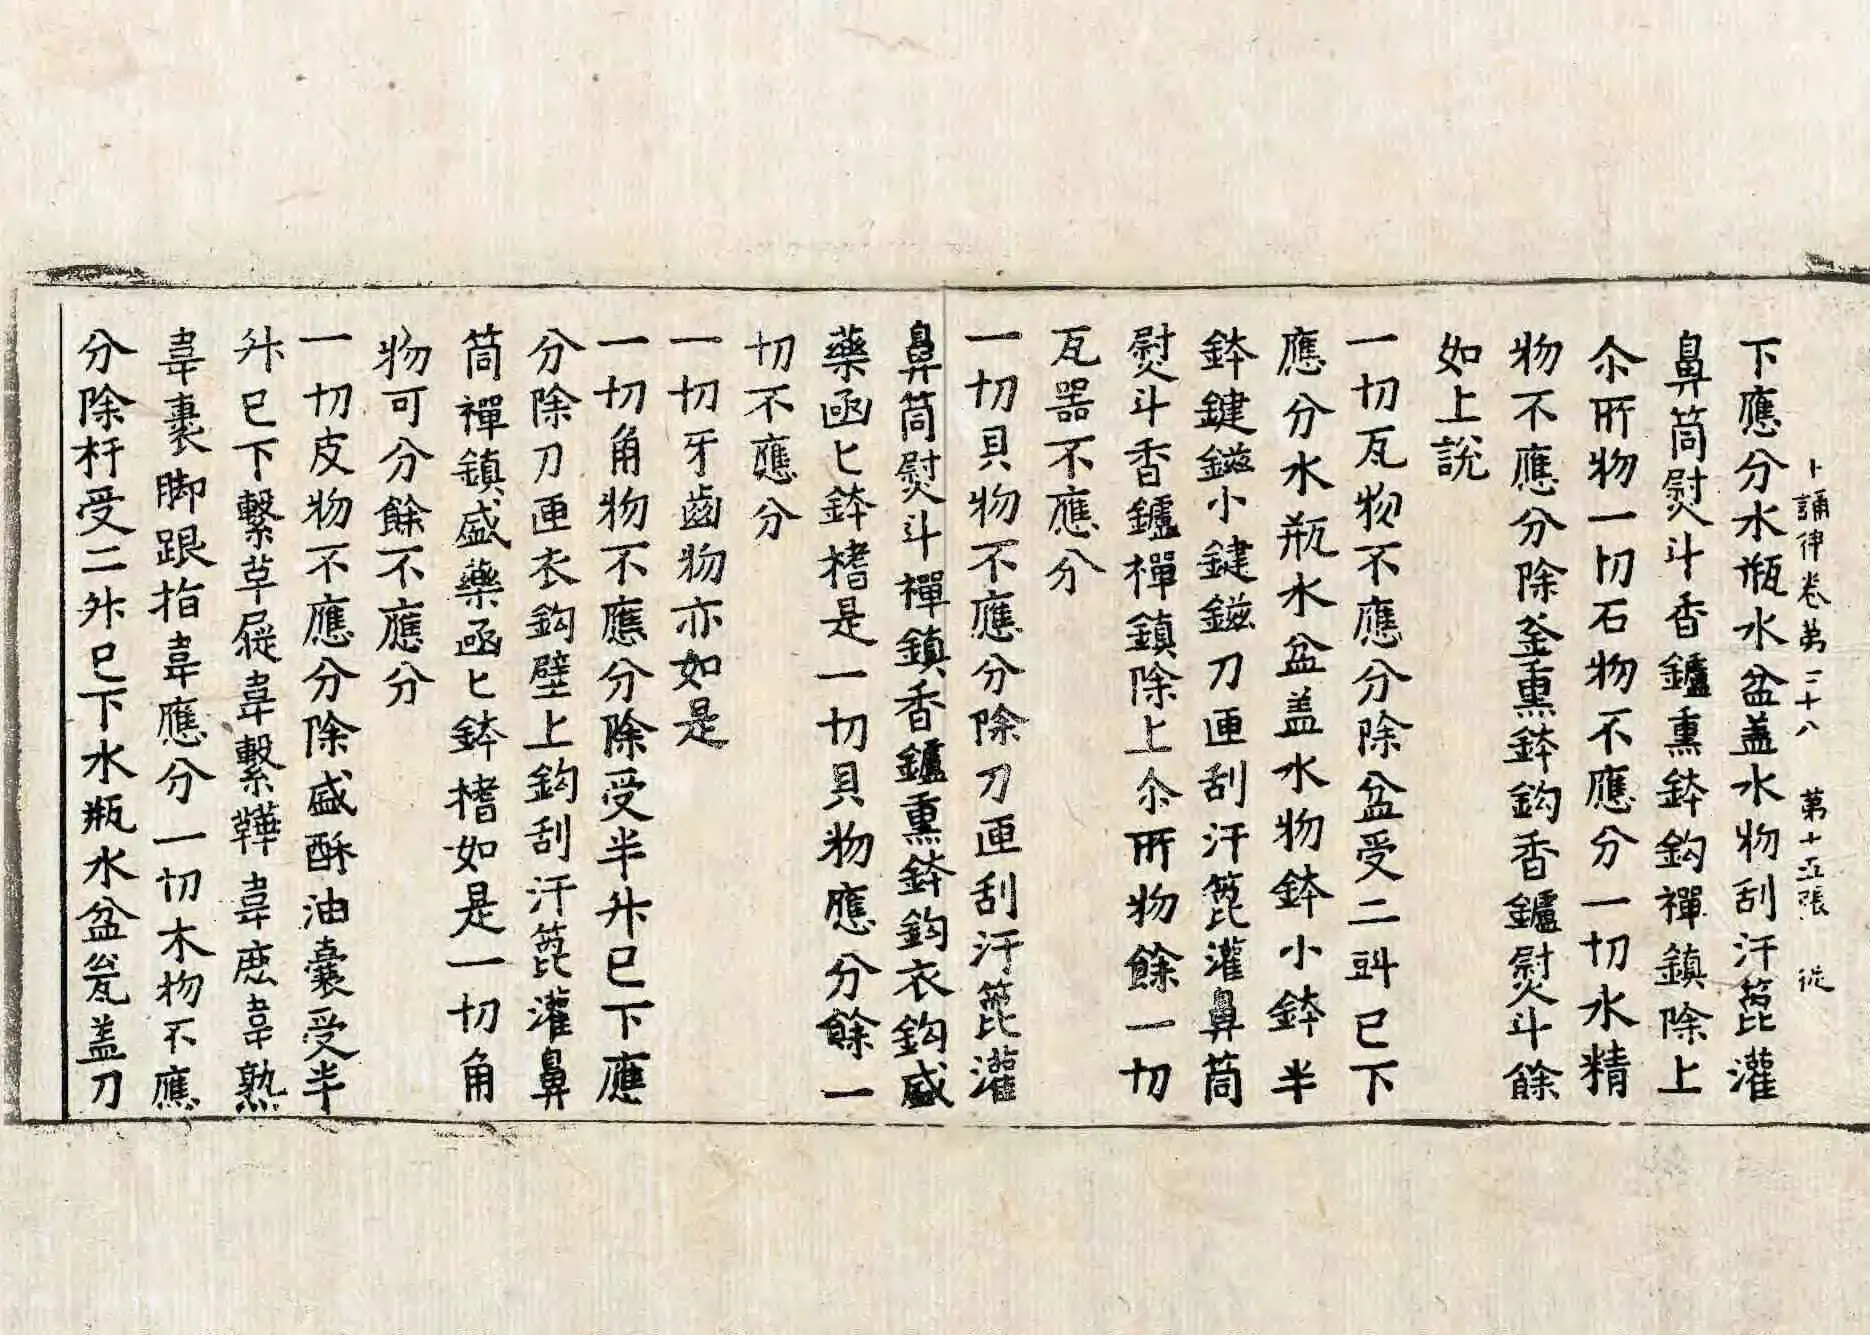 卜誦律卷第二十八 第十五張 従
下應分水瓶水盆盖水物刮汗篦灌
鼻筒熨斗香鑪熏鉢鈎禪鎮除上
尒所物一切石物不應分一切水精
物不應分除釜熏鉢鈎香鑪熨斗餘
如上說
一切瓦物不應分除盆受二㪷已下
應分水瓶水盆盖水物鉢小鉢半
鉢鍵鎡小鍵鎡刀匣刮汗篦灌鼻筒
熨斗香鑪禪鎮除上尒所物餘一切
瓦器不應分
一切貝物不應分除刀匣刮汗篦灌
鼻筒熨斗禪鎮香鑪熏鉢鈎衣鈎盛
藥凾匕鉢榰是一切貝物應分餘一
切不應分
一切牙齒物亦如是
一切角物不應分除受半升已下應
分除刀匣衣鈎壁上鈎刮汗篦灌鼻
筒禪鎮盛藥凾匕鉢榰如是一切角
物可分餘不應分
一切皮物不應分除盛酥油囊受半
升已下繫草屣韋繫韡韋麃韋熟
韋裹脚跟指韋應分一切木物不應
分除杆受二升已下水瓶水盆瓫盖刀